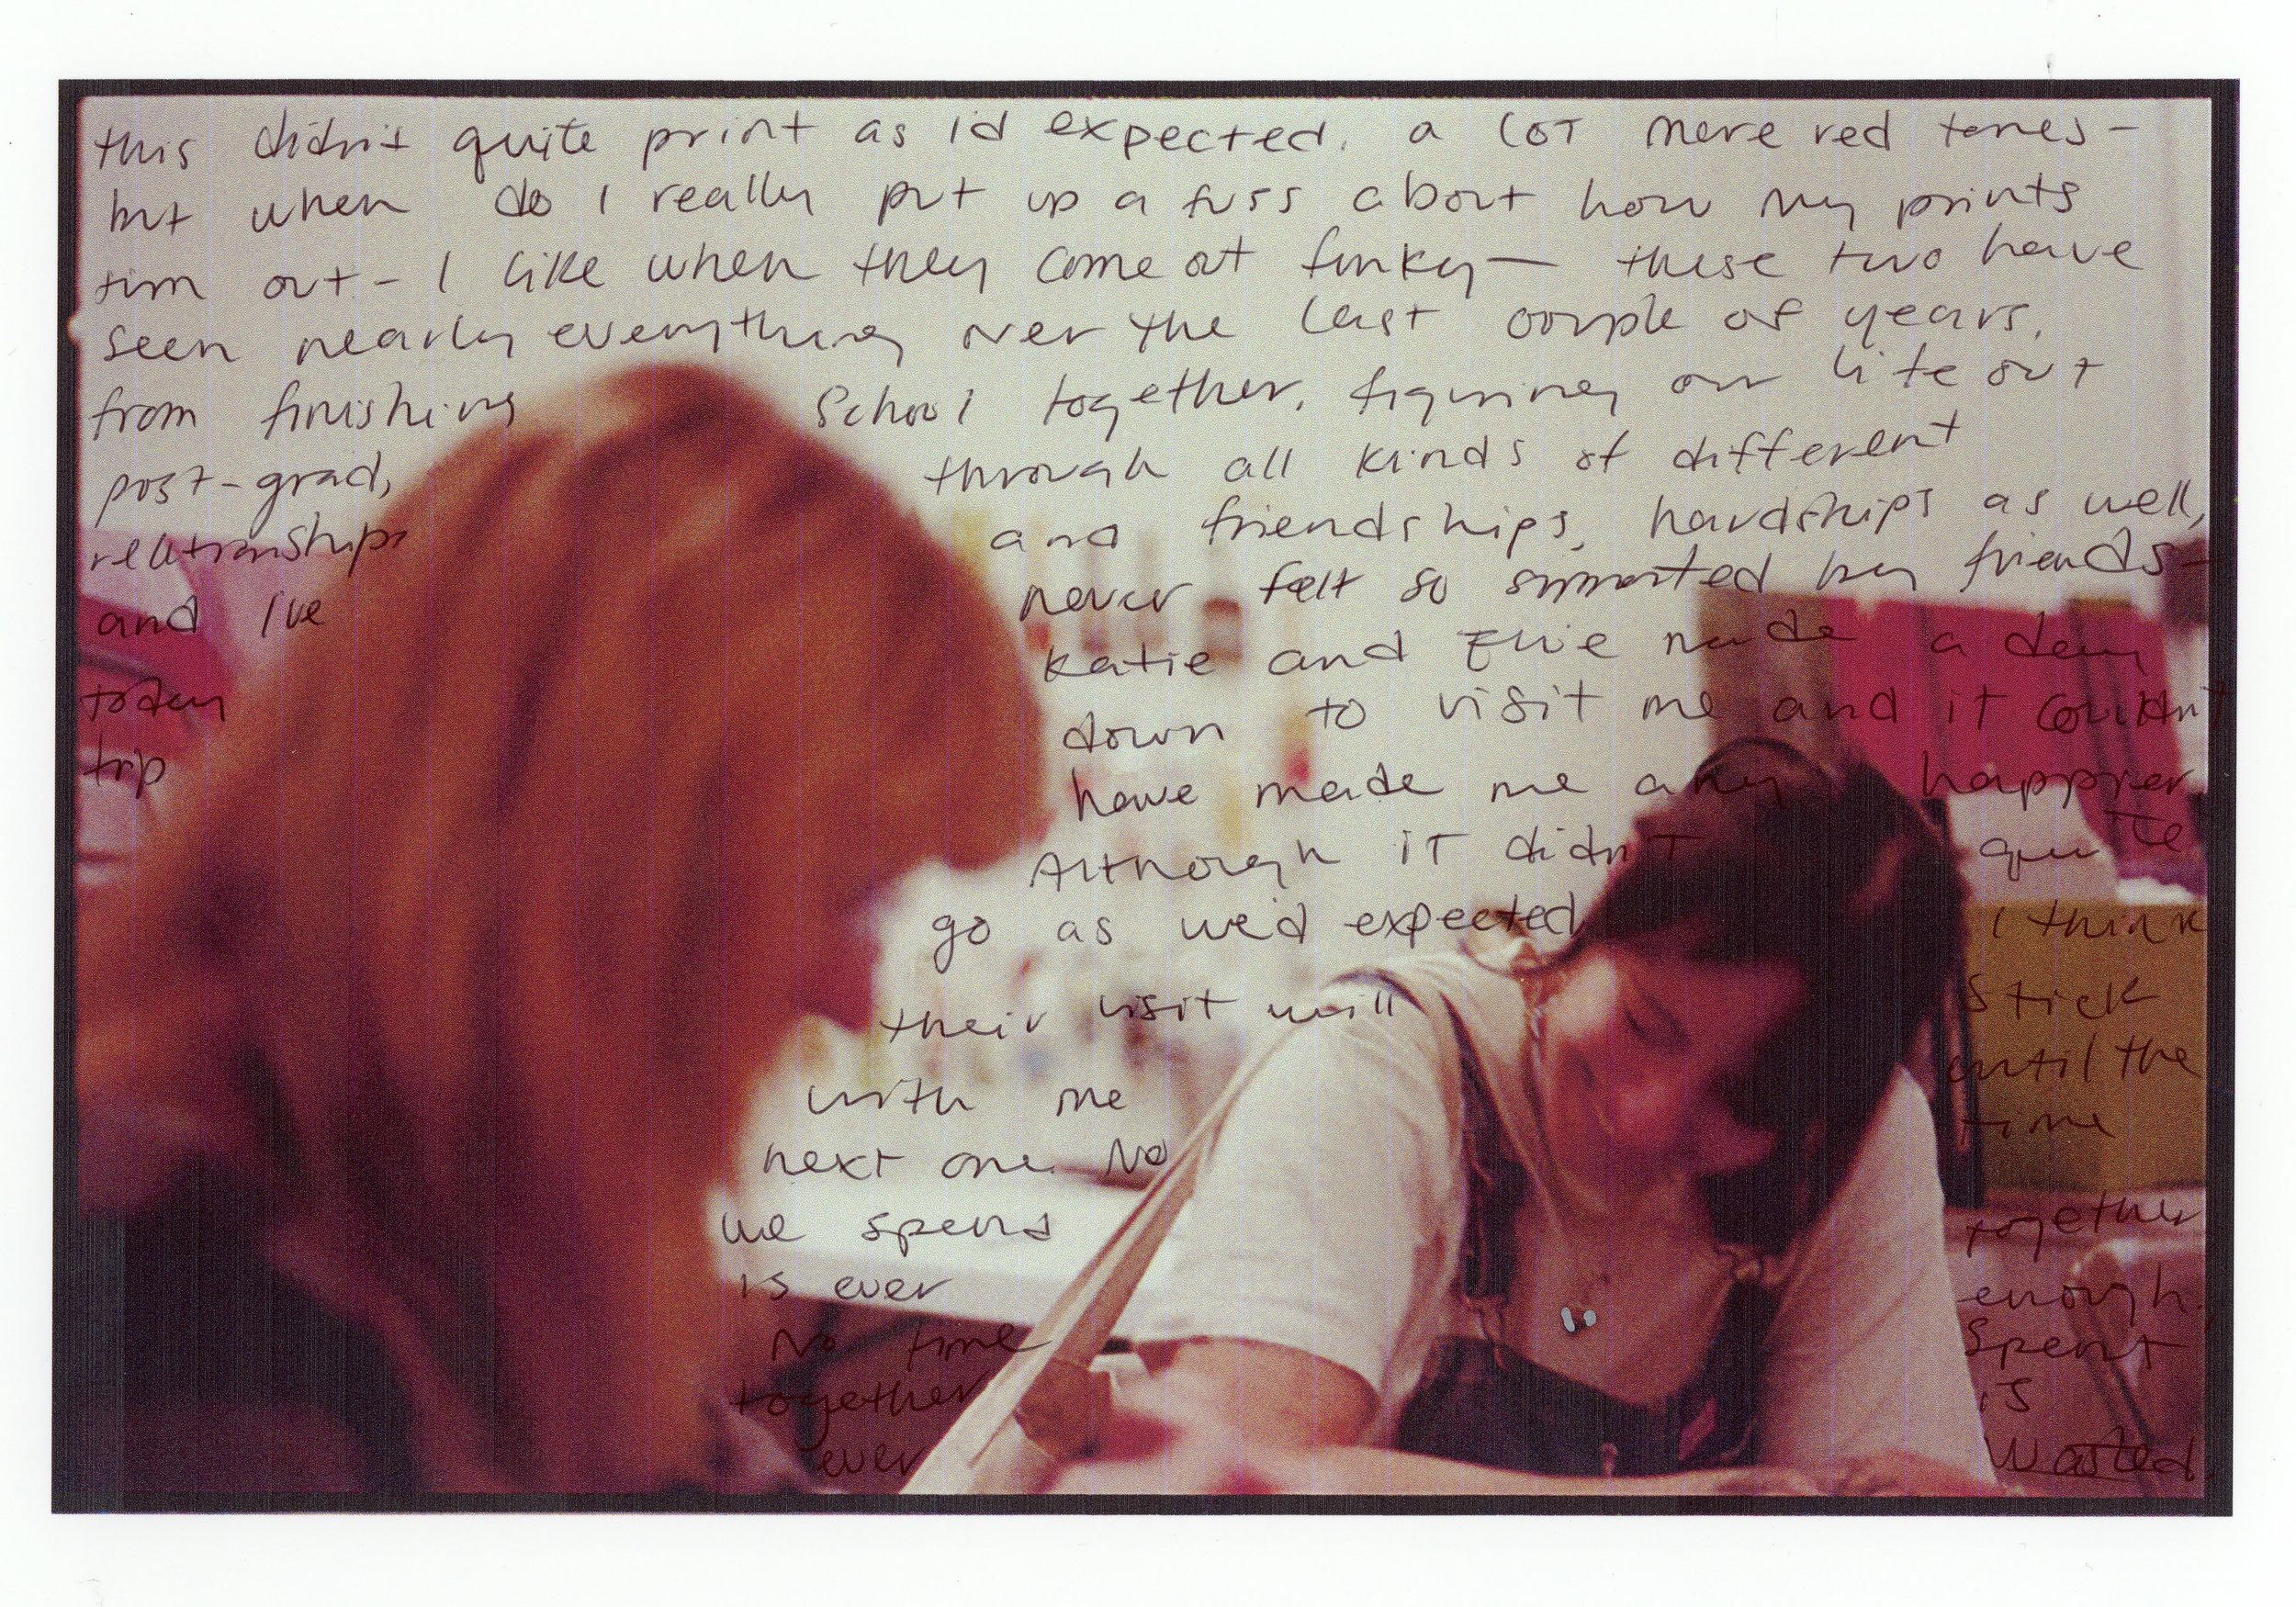 this didn't quite print as i'd expected. a lot more red tones -
but when do I really put up a fuss about how my prints
turn out - I like when they come out funky — these two have
seen nearly everything over the last couple of years.
from finishing school together, figuring our life out
post-grad, through all kinds of different
relationships and friendships, hardships as well,
and I've never felt so supported by friends -
today Katie and Evie made a day
trip down to visit me and it couldn't
have made me any happier,
Although it didn't quite
go as we'd expected I think
their visit will stick
with me until the
next one. No time
we spend together
is ever enough.
No time spent
together is
ever wasted.